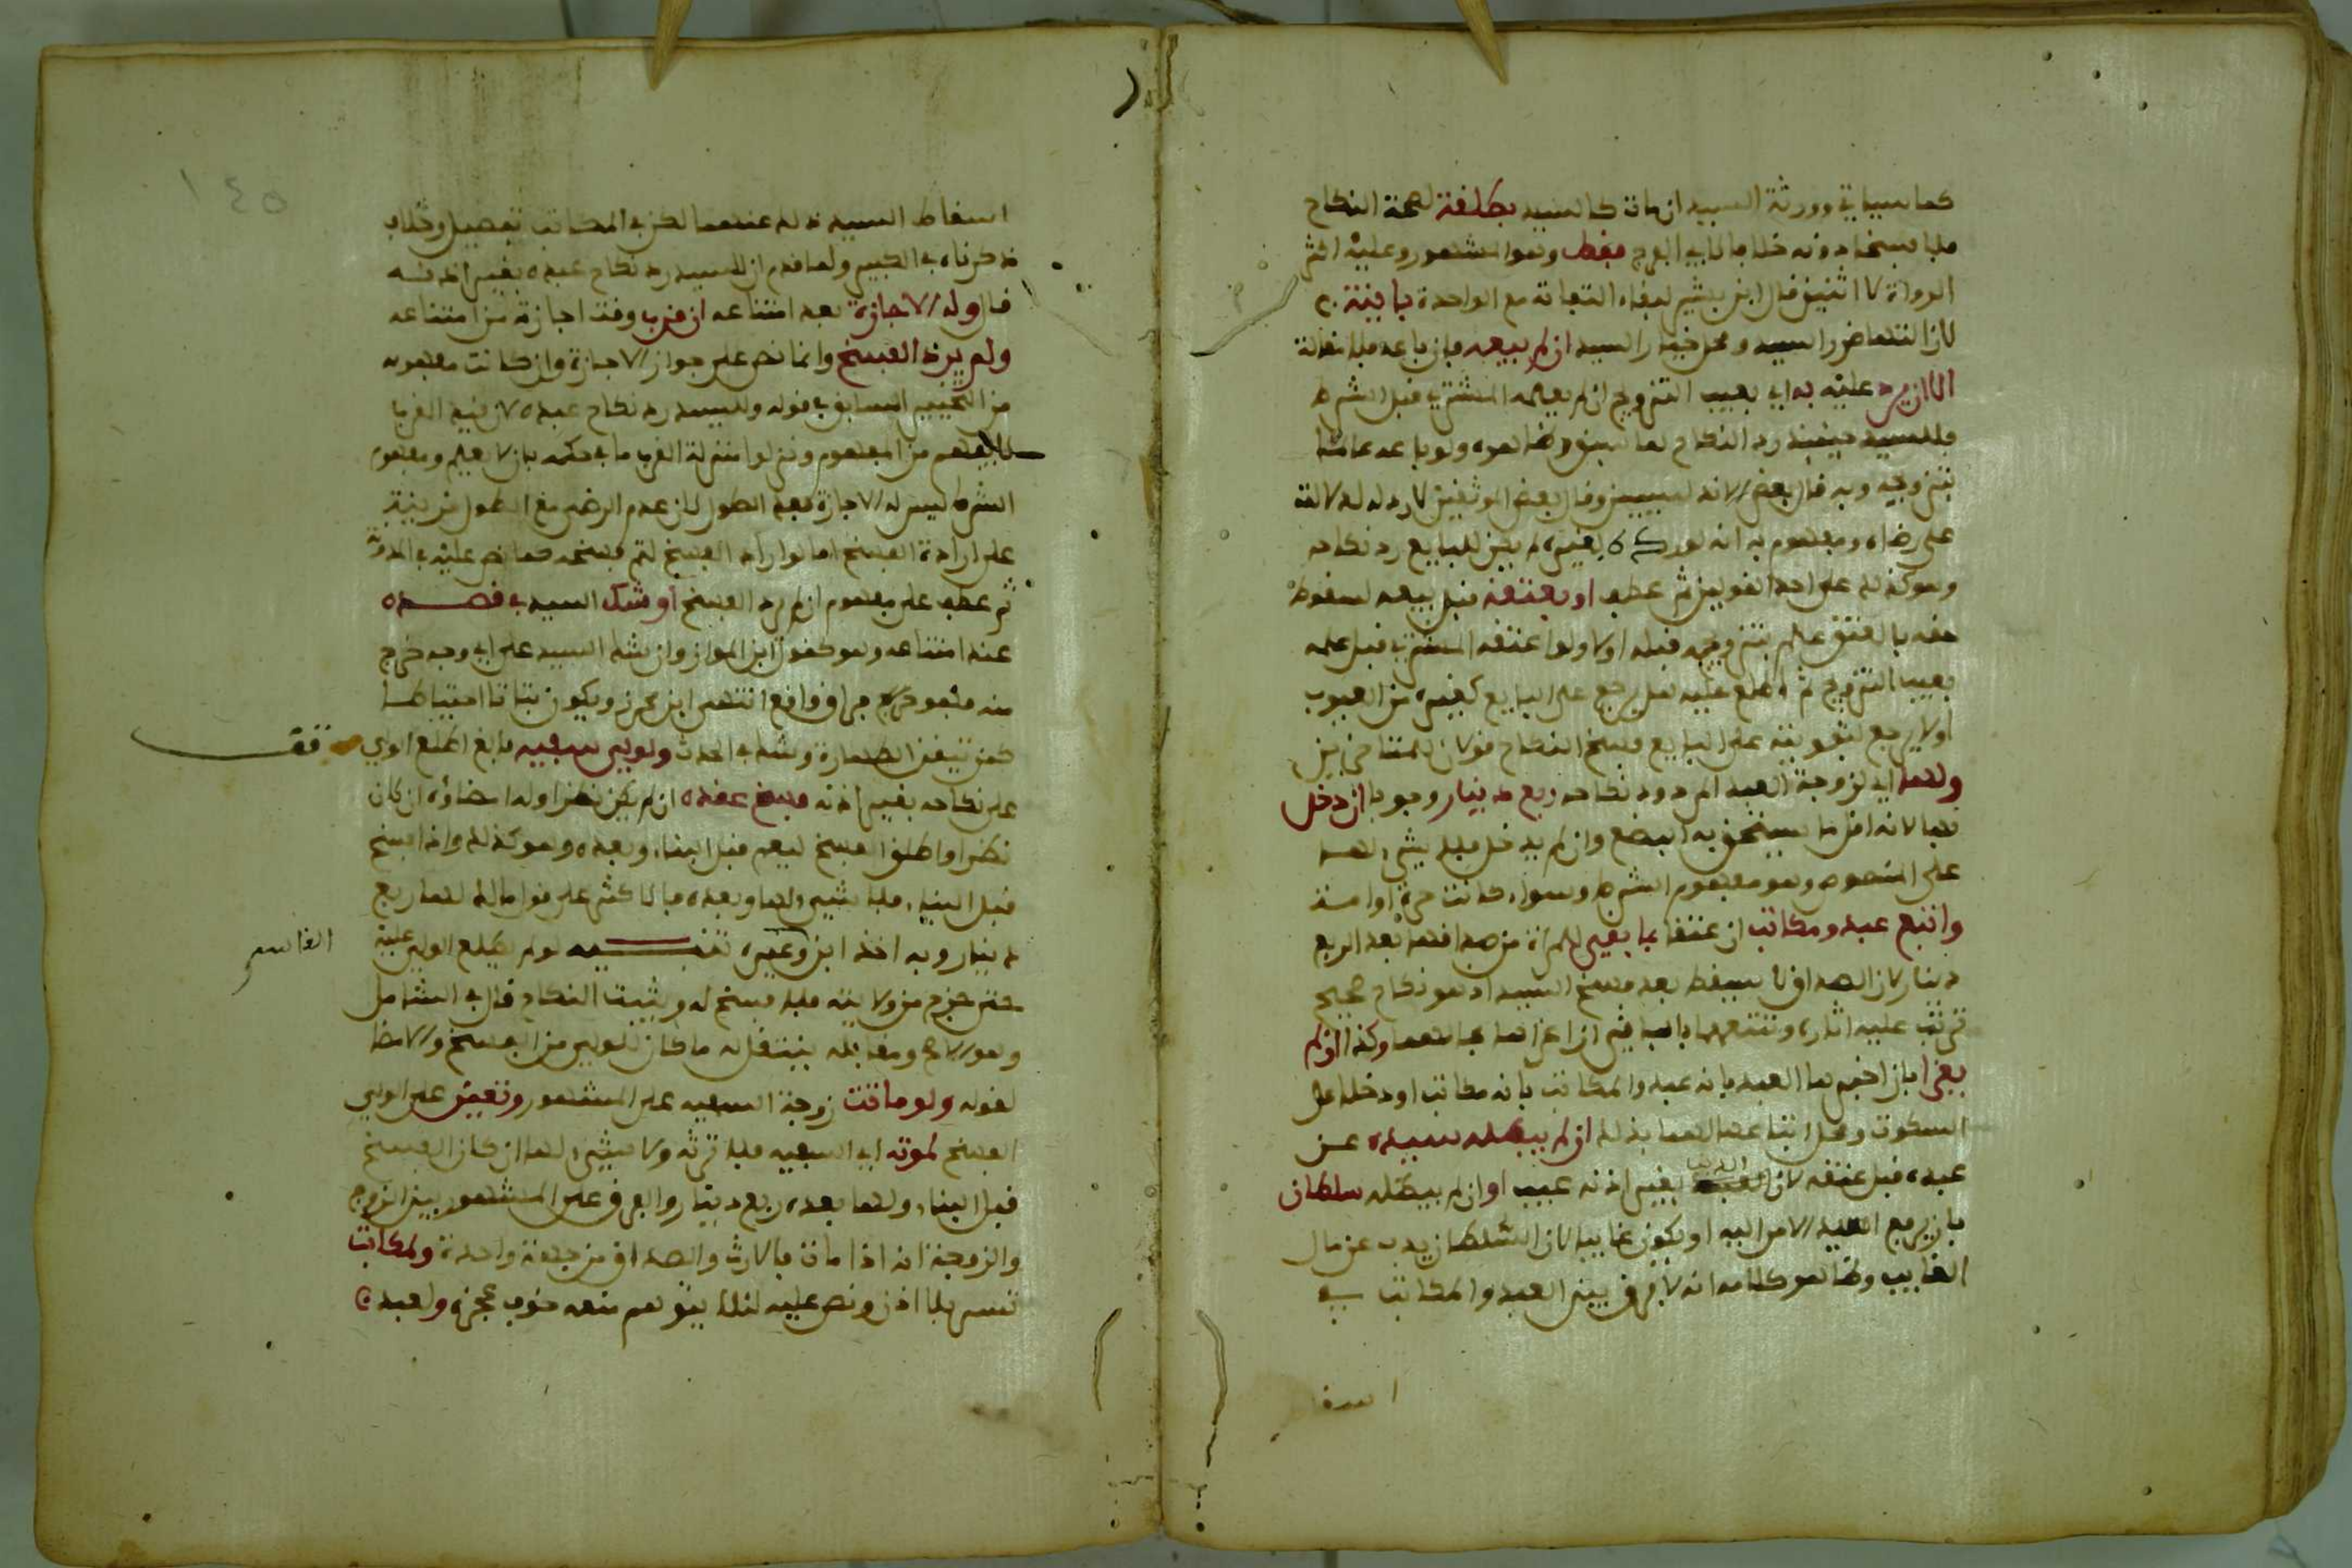 كما سياتي وورثة السيد ان مات كالسيد بطلقة لصحة النكاح
فلا فسخا دونه خلافا لابي الفرج فقط وهو المشهور وعليه اكثر
الرواة لا اثنين قال ابن بشير لبقاء التفاته مع الواحدة باينة
لان انتهاء ضرر السيد ومحل خيار السيد ان لم يبعه فان باعه فلا مقالة
الا ان يرد عليه به اي بعيب التزويج ان لم يعلمه المشتري قبل الشراء
فللسيد حينئذ رد النكاح لما سبق وظاهره ولو باعه عالما
بتزويجه وبه قال بعض الاندلسيين وقال بعض الموثقين لا رد له لدلالته
على رضاه ومفهوم به انه لو رده بغيره لم يكن للبايع رد نكاحه
وهو كذلك على احد القولين ثم عطف او يعتقه قبل بيعه لسقوط
حقه بالعتق علم بتزويجه قبله او لا ولو اعتقه المشتري قبل علمه
بعيب التزويج ثم اطلع عليه هل يرجع على البايع كغيره من العيوب
او لا يرجع لتفويته على البايع فسخ النكاح قولان للمتاخرين
ولها اي لزوجة العبد المردود نكاحه ربع دينار وجوبا ان دخل
بها لانه اقل ما يستحق به البضع وان لم يدخل فلا شيء لها
على المنصوص وهو مفهوم الشرط وسواء كانت حرة او امة
واتبع عبد ومكاتب ان عتقا بما بقي للمراة من صداقها بعد الربع
دينار لان الصداق لا يسقط بعد فسخ السيد اذ هو نكاح صحيح
ترتب عليه اثاره وتتبعهما بالباقي ان غراها بحالهما وكذا ان لم
يغرا بان اخبرها العبد بانه عبد والمكاتب بانه مكاتب او دخلا على
السكوت ومحل اتباعها لهما بذلك ان لم يبطله سيده عن
عبده قبل عتقه لان الدين بغير اذنه عيب او ان لم يبطله سلطان
بان يرفع السيد الامر اليه او يكون غايبا لان السلطان يذب عن مال
الغايب وظاهر كلامه انه لا فرق بين العبد والمكاتب في
اسقا
١٤٥
اسقاط السيد ذلك عنهما لكن في المكاتب تفصيل وخلاف
ذكرناه في الكبير ولما قدم ان للسيد رد نكاح عبده بغير اذنه
قال وله الاجازة بعد امتناعه ان قرب وقت اجازته من امتناعه
ولم يرد الفسخ وانما نص على جواز الاجازة وان كانت مفهومه
من التخيير السابق في قوله وللسيد رد نكاح عبده لان قيد القرب
لا يفهم من المفهوم ونزلوا منزلة القرب ما في حكمه بان لا يعلم ومفهوم
الشرط ليس له الاجازة مع الطول لان عدم الرضى مع الطول قرينة
على ارادة الفسخ اما لو اراد الفسخ لتم فسخه كما نص عليه في المدونة
ثم عطف على مفهوم ان لم يرد الفسخ او شك السيد في قصده
عند امتناعه وهو كقول ابن المواز وان شك السيد على اي وجه خرج
منه فهو فراق واقع انتهى ابن محرز ويكون بتاتا احتياطا
كمن تيقن الطهارة وشك في الحدث ولولي سفيه بالغ اطلع الولي
على نكاحه بغير اذنه فسخ عقده ان لم يكن نظرا وله امضاؤه ان كان
نظرا واطلق الفسخ ليعم قبل البناء وبعده وهو كذلك واذا فسخ
قبل البناء فلا شيء لها وبعده فالاكثر على قول مالك لها ربع
دينار وبه اخذ ابن القاسم وغيره تنبيه لو لم يطلع الولي عليه
حتى خرج من ولايته فلا فسخ له ويثبت النكاح قال في الشامل
وهو الاصح ومقابله ينتقل له ما كان للولي من الفسخ والامضا
لقوله ولو ماتت زوجة السفيه على المشهور وتعين على الولي
الفسخ لموته اي السفيه فلا ترثه ولا شيء لها ان كان الفسخ
قبل البناء ولها بعده ربع دينار والفرق على المشهور بين الزوج
والزوجة انه اذا مات فالارث والصداق من جهة واحدة ولمكاتب
تسر بلا اذن ونص عليه لئلا يتوهم منعه خوف عجزه ولعبد
القاسم